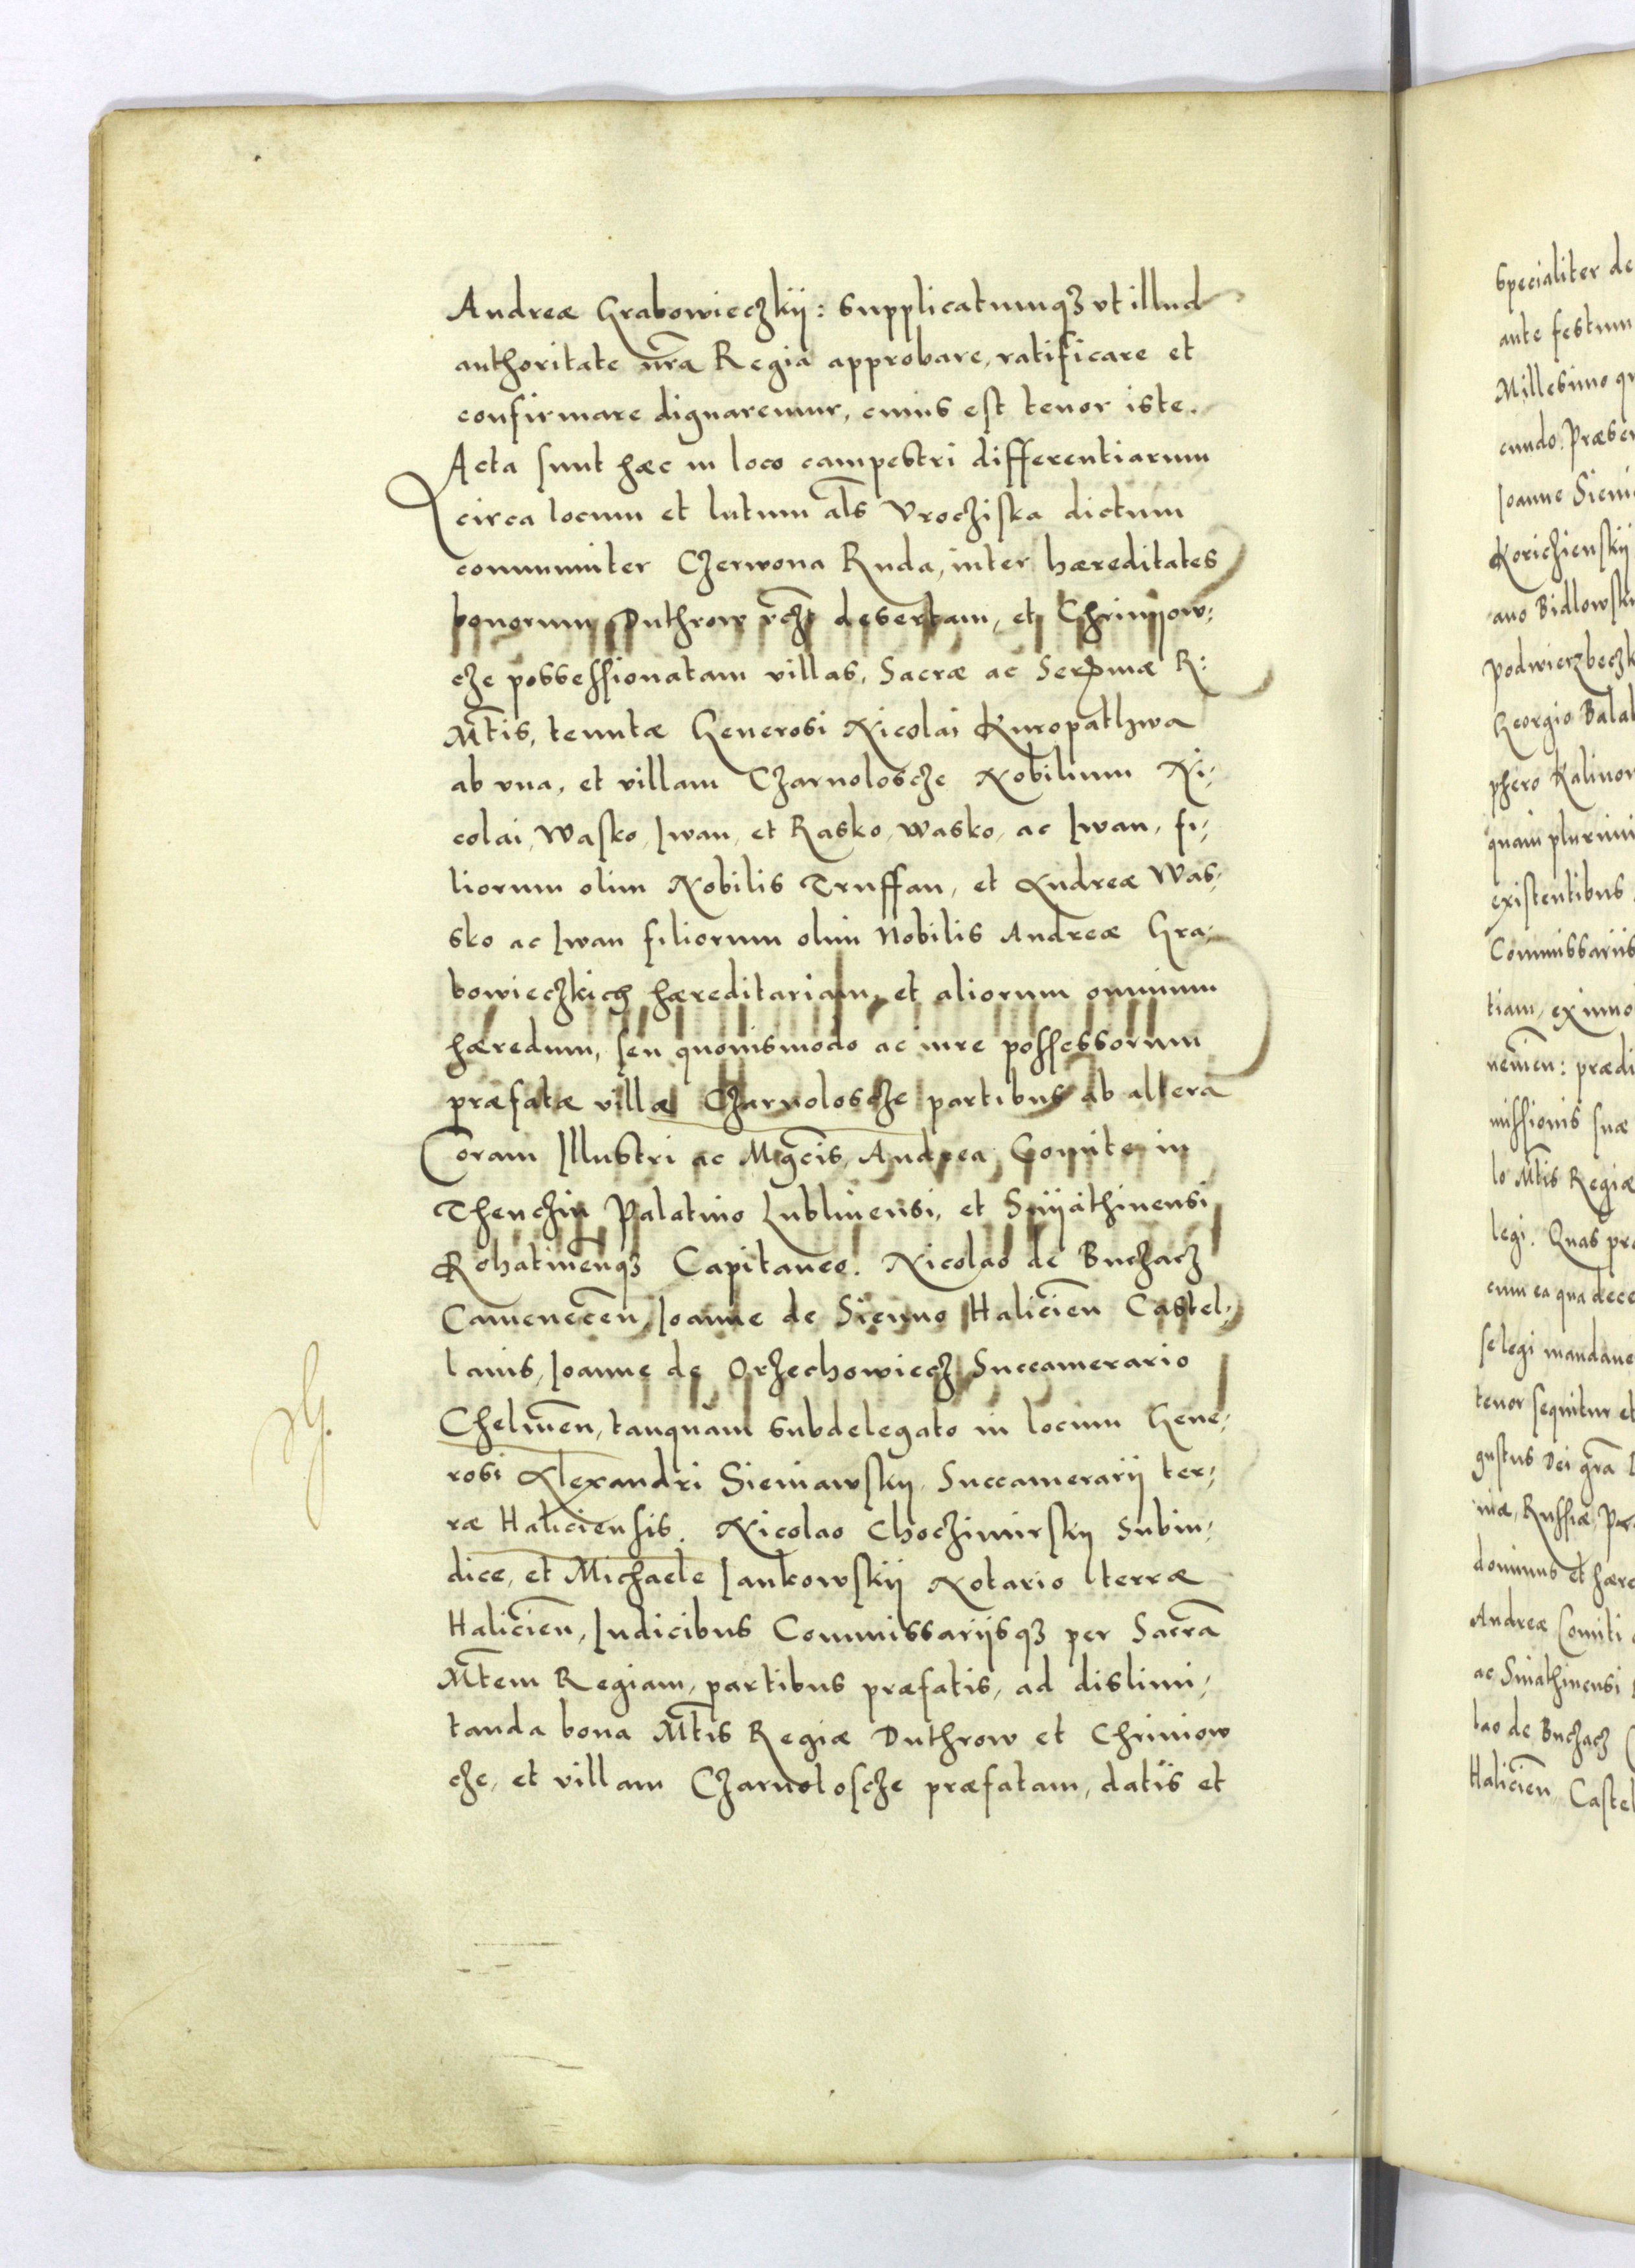 Andreæ Grabowieczkij: supplicatumqȝ vt illud
authoritate nr̃a Regia approbare, ratificare et
confirmare dignaremur, cuius est tenor iste.
Acta sunt hæc in loco campestri differentiarum
circa locum et lutum al̃s Vrocziska dictum
communiter Czerwona Ruda, inter hæreditates
bonorum Duthrow desertam, et Chrinijow:
cze possessionatam villas, Sacræ ac Serñmæ R:
Mt̃is, tenutæ Generosi Nicolai Kuropathwa
ab vna, et villam Czarnoloscze Nobilium Ni:
colai, Wasko, Iwan, et Rasko, Wasko, ac Iwan, fi:
liorum olim Nobilis Truffan, et Andreæ Was:
sko ac Iwan filiorum olim Nobilis Andreæ Gra:
bowieczkich hæreditariam, et aliorum omnium
hæredum, seu quouismodo ac iure possessorum
præfatæ villæ Czarnoloscze partibus ab altera
Coram Illustri ac Mgc̃is, Andrea Comite in
Thenczin Palatino Lublinensi, et Snijathinensi
Rohatinenqȝ Capitaneo. Nicolao de Buczacz
Camenecen̄, Ioanne de Sienno Halicien̄ Castel:
lanis, Ioanne de Orzechowiecz Succamerario
Chelmen̄, tanquam subdelegato in locum Gene:
rosi Alexandri Sieniawskij Succamerarij ter:
ræ Haliciensis. Nicolao Choczimirskij Subiu:
dice, et Michaele Iankowskij Notario terræ
Halicien̄, Iudicibus Commissarijsqȝ per Sacrã
Mt̃em Regiam, partibus præfatis, ad dislimi:
tanda bona Mt̃is Regiæ Duthrow et Chriniow
cze, et villam Czarnoloscze præfatam, datis et
Specialiter de
ante festum
Millesimo qu
cundo. Præsen
Ioanne Sieni
Koriczienskij
ano Bidlowski
Podwierzbeczk
Georgio Balab
phero Kalinow
quam plurimi
existentibus
Commissarijs
tiam, eximo
nemien: prædi
missionis suæ
lo Mt̃is Regiæ
legi. Quas pra
cum ea qua dece
se legi mandaue
tenor sequitur et
gustus Dei gr̃a
niæ, Russiæ, Pr
dominus et hære
Andreæ Comiti
ac Sniathinensi
lao de Buczacz
Halicien̄, Castel